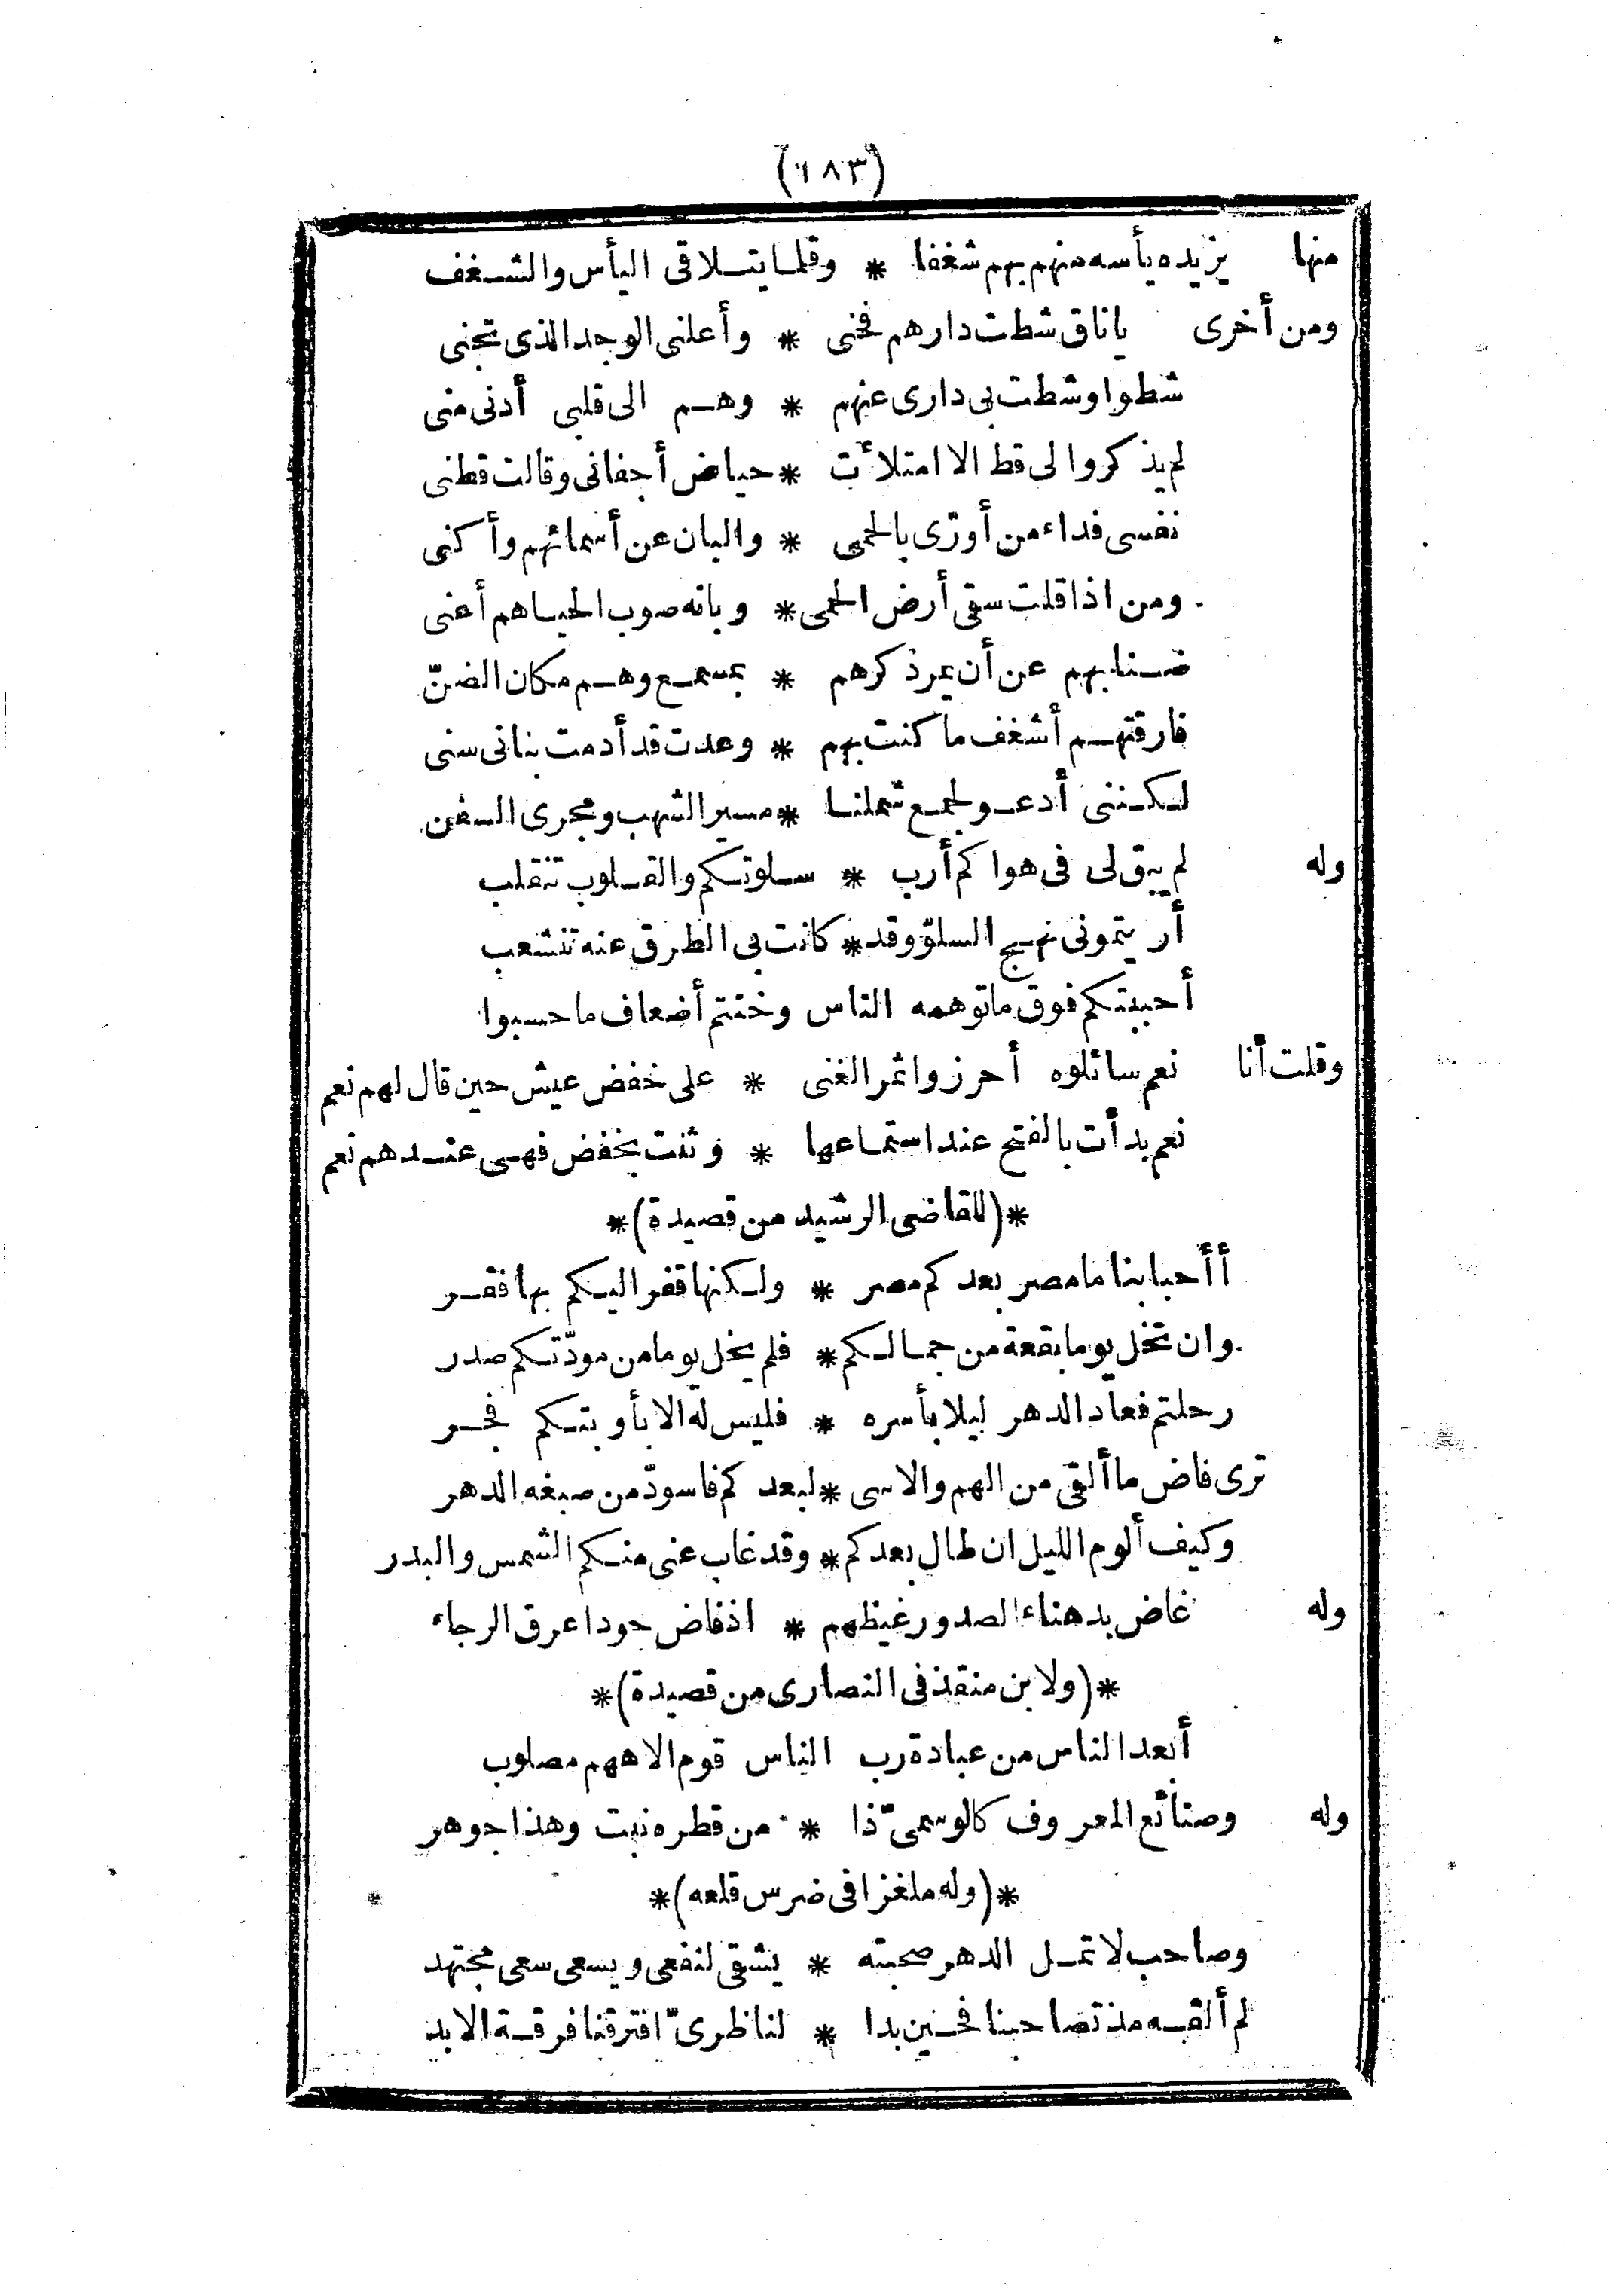 (١٨٣)
منها يزيده يأسه منهم بهم شغفا * وقلما يتلاقى اليأس والشغف
ومن أخرى يا ناق شطت دارهم فحنى * وأعلنى الوجد الذى تجنى
شطوا وشطت بى دارى عنهم * وهم الى قلبى أدنى منى
لم يذكروا لى قط الا امتلأت * حياض أجفانى وقالت قطنى
نفسى فداء من أورّى بالحمى * والبان عن أسمائهم وأكنى
ومن اذا قلت سقى أرض الحمى * وبانه صوب الحياهم أعنى
ضنا بهم عن أن يمر ذكرهم * بمسمع وهم مكان الضنّ
فارقتهم أشغف ما كنت بهم * وعدت قد أدمت بنانى سنى
لكننى أدعو لجمع شملنا * مسير الشهب ومجرى السفن
وله لم يبق لى فى هواكم أرب * سلوتكم والقلوب تنقلب
أريتمونى نهج السلوّ وقد * كانت بى الطرق عنه تنشعب
أحببتكم فوق ما توهمه الناس وخنتم أضعاف ما حسبوا
وقلت أنا نعم سائلوه أحرزوا ثمر الغنى * على خفض عيش حين قال لهم نعم
نعم بدأت بالفتح عند استماعها * وثنت بخفض فهى عندهم نعم
*(للقاضى الرشيد من قصيدة)*
أأحبابنا ما مصر بعدكم مصر * ولكنها قفر اليكم بها فقر
وان تخل يوما بقعة من جمالكم * فلم يخل يوما من مودّتكم صدر
رحلتم فعاد الدهر ليلا بأسره * فليس له الا بأوبتكم فجر
ترى فاض ما ألقى من الهم والاسى * لبعدكم فاسودّ من صبغه الدهر
وكيف ألوم الليل ان طال بعدكم * وقد غاب عنى منكم الشمس والبدر
وله غاض بدهناء الصدور غيظهم * اذ فاض جودا عرق الرجاء
*(ولابن منقذ فى النصارى من قصيدة)*
أبعد الناس من عبادة رب الناس قوم الاههم مصلوب
وله وصنائع المعروف كالوسمىّ ذا * من قطره نبت وهذا جوهر
*(وله ملغزا فى ضرس قلعه)*
وصاحب لا تمل الدهر صحبته * يشقى لنفعى ويسعى سعى مجتهد
لم ألقه مذ تصاحبنا فحين بدا * لناظرىّ افترقنا فرقة الابد